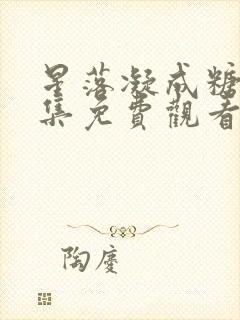 星落凝成糖
集免費觀看
陶慶